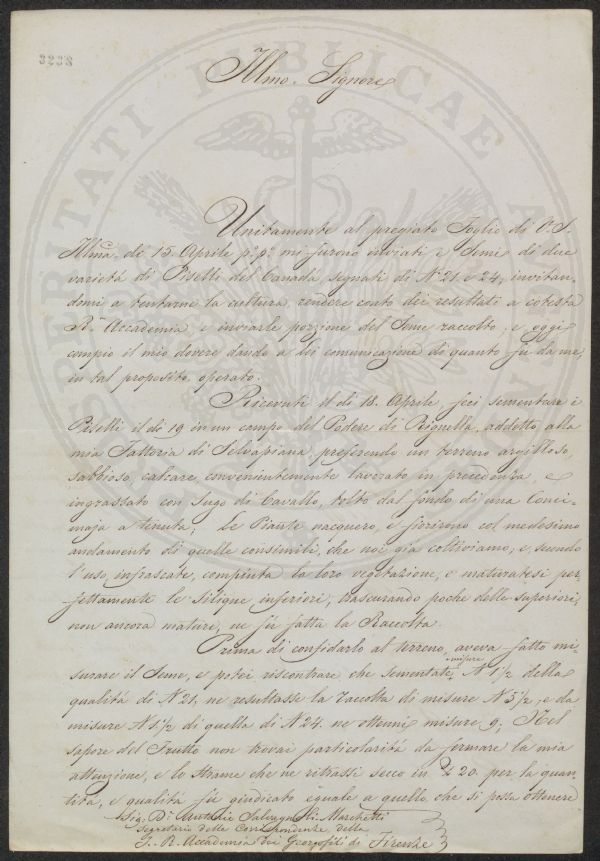 3238
Illmo. Signore
Unitamente al pregiato Foglio di V. S.
Illma. de' 15. Aprile p.º p.º mi furono inviati i Semi di due
varietà di Piselli del Canadà segnati di Nº 21. e 24, invitan-
domi a tentarne la cultura, rendere conto dei resultati a cotesta
R. Accademia, e inviarle porzione del Seme raccolto, e oggi
compio il mio dovere dando a Lei comunicazione di quanto fù da me,
in tal proposito operato.
Ricevuti il dì 18. Aprile, feci sementare i
Piselli il dì 19 in un campo del Podere di Pignella, addetto alla
mia Fattoria di Selvapiana, preferendo un terreno argilloso,
sabbioso, calcare, convenientemente lavorato in precedenza, e
ingrassato con Sugo di Cavallo, tolto dal fondo di una Conci-
maja a tenuta; Le Piante nacquero, e fiorirono col medesimo
andamento di quelle consimili, che noi già coltiviamo; e, secondo
l'uso, infrascate, compiuta la loro vegetazione, e maturatesi per-
fettamente le Silique inferiori, trascurando poche delle superiori,
non ancora mature, ne fù fatta la Raccolta.
Prima di confidarlo al terreno, aveva fatto mi-
surare il Seme, e potei riscontrare, che sementate, misure Nº 1½ della
qualità di Nº 21, ne resultasse la raccolta di misure Nº 5½, e da
misure Nº 1½ di quella di Nº 24. ne ottenni misure 9; Nel
sapore del Frutto non trovai particolarità da fermare la mia
attenzione, e lo Strame che ne ritrassi secco in 20. per la quan-
tità, e qualità fù giudicato eguale a quello, che si possa ottenere
Sig. Dr. Antonio Salvagnoli Marchetti
Segretario delle Corrispondenze della
I. R. Accademia dei Georgofili di Firenze
PROSPERITATI PUBLICAE